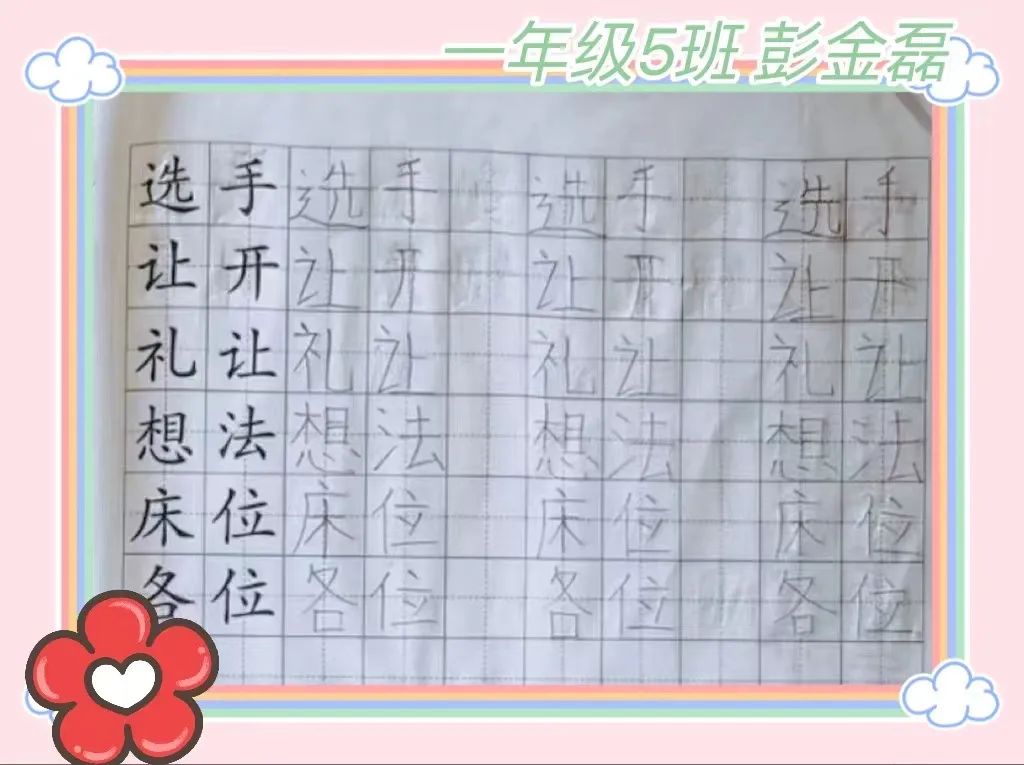 一年级5班 彭金磊
选手 选手 选手 选手
让开 让开 让开 让开
礼让 礼让 礼让 礼让
想法 想法 想法 想法
床位 床位 床位 床位
各位 各位 各位 各位